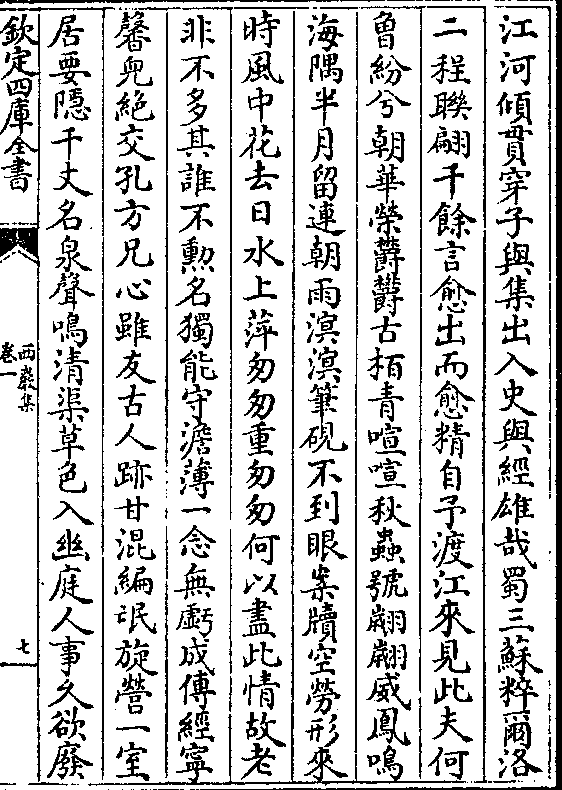 江河傾貫穿子與集出入史與經雄哉蜀三蘇粹爾洛
二程聨翩千餘言愈出而愈精自予渡江來見此夫何
曾紛兮朝華榮欝欝古栢青喧喧秋蟲號翽翽威鳳鳴
海隅半月留連朝雨溟溟筆硯不到眼案牘空勞形來
時風中花去日水上萍匆匆重匆匆何以盡此情故老
非不多其誰不勲名獨能守澹薄一念無虧成傅經寧
馨兒絶交孔方兄心雖友古人跡甘混編氓旋營一室
居要隱千丈名泉聲鳴清渠草色入幽庭人事久欲廢
欽定四庫全書
西巖集
卷一
七